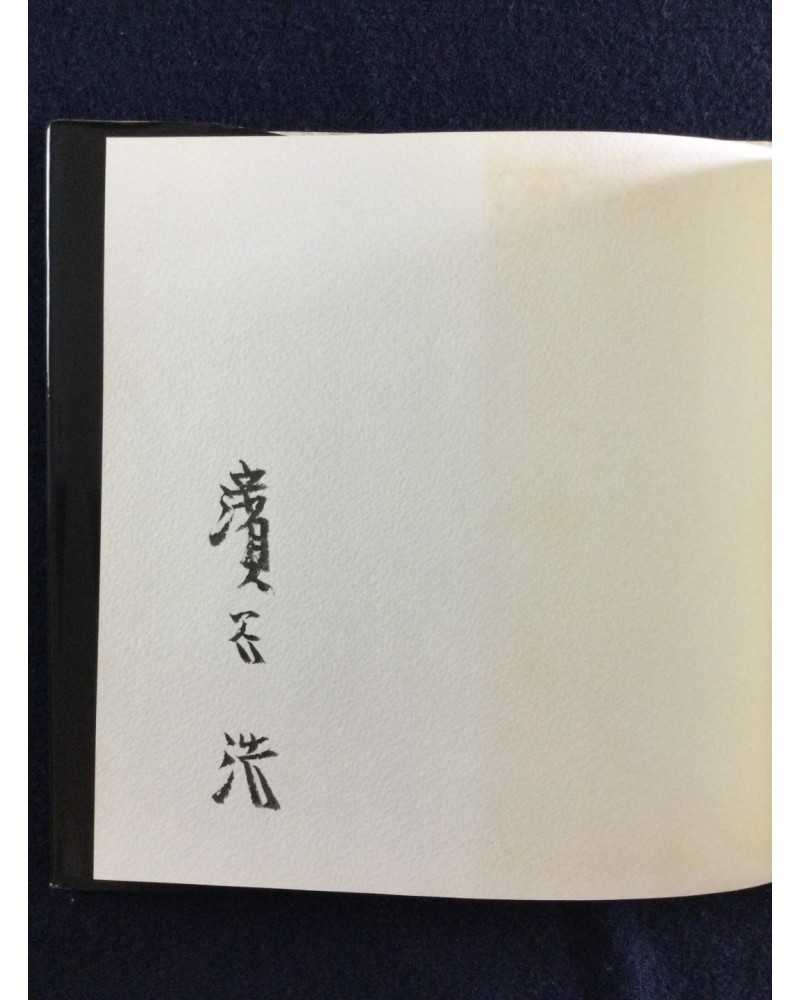 濱谷 浩